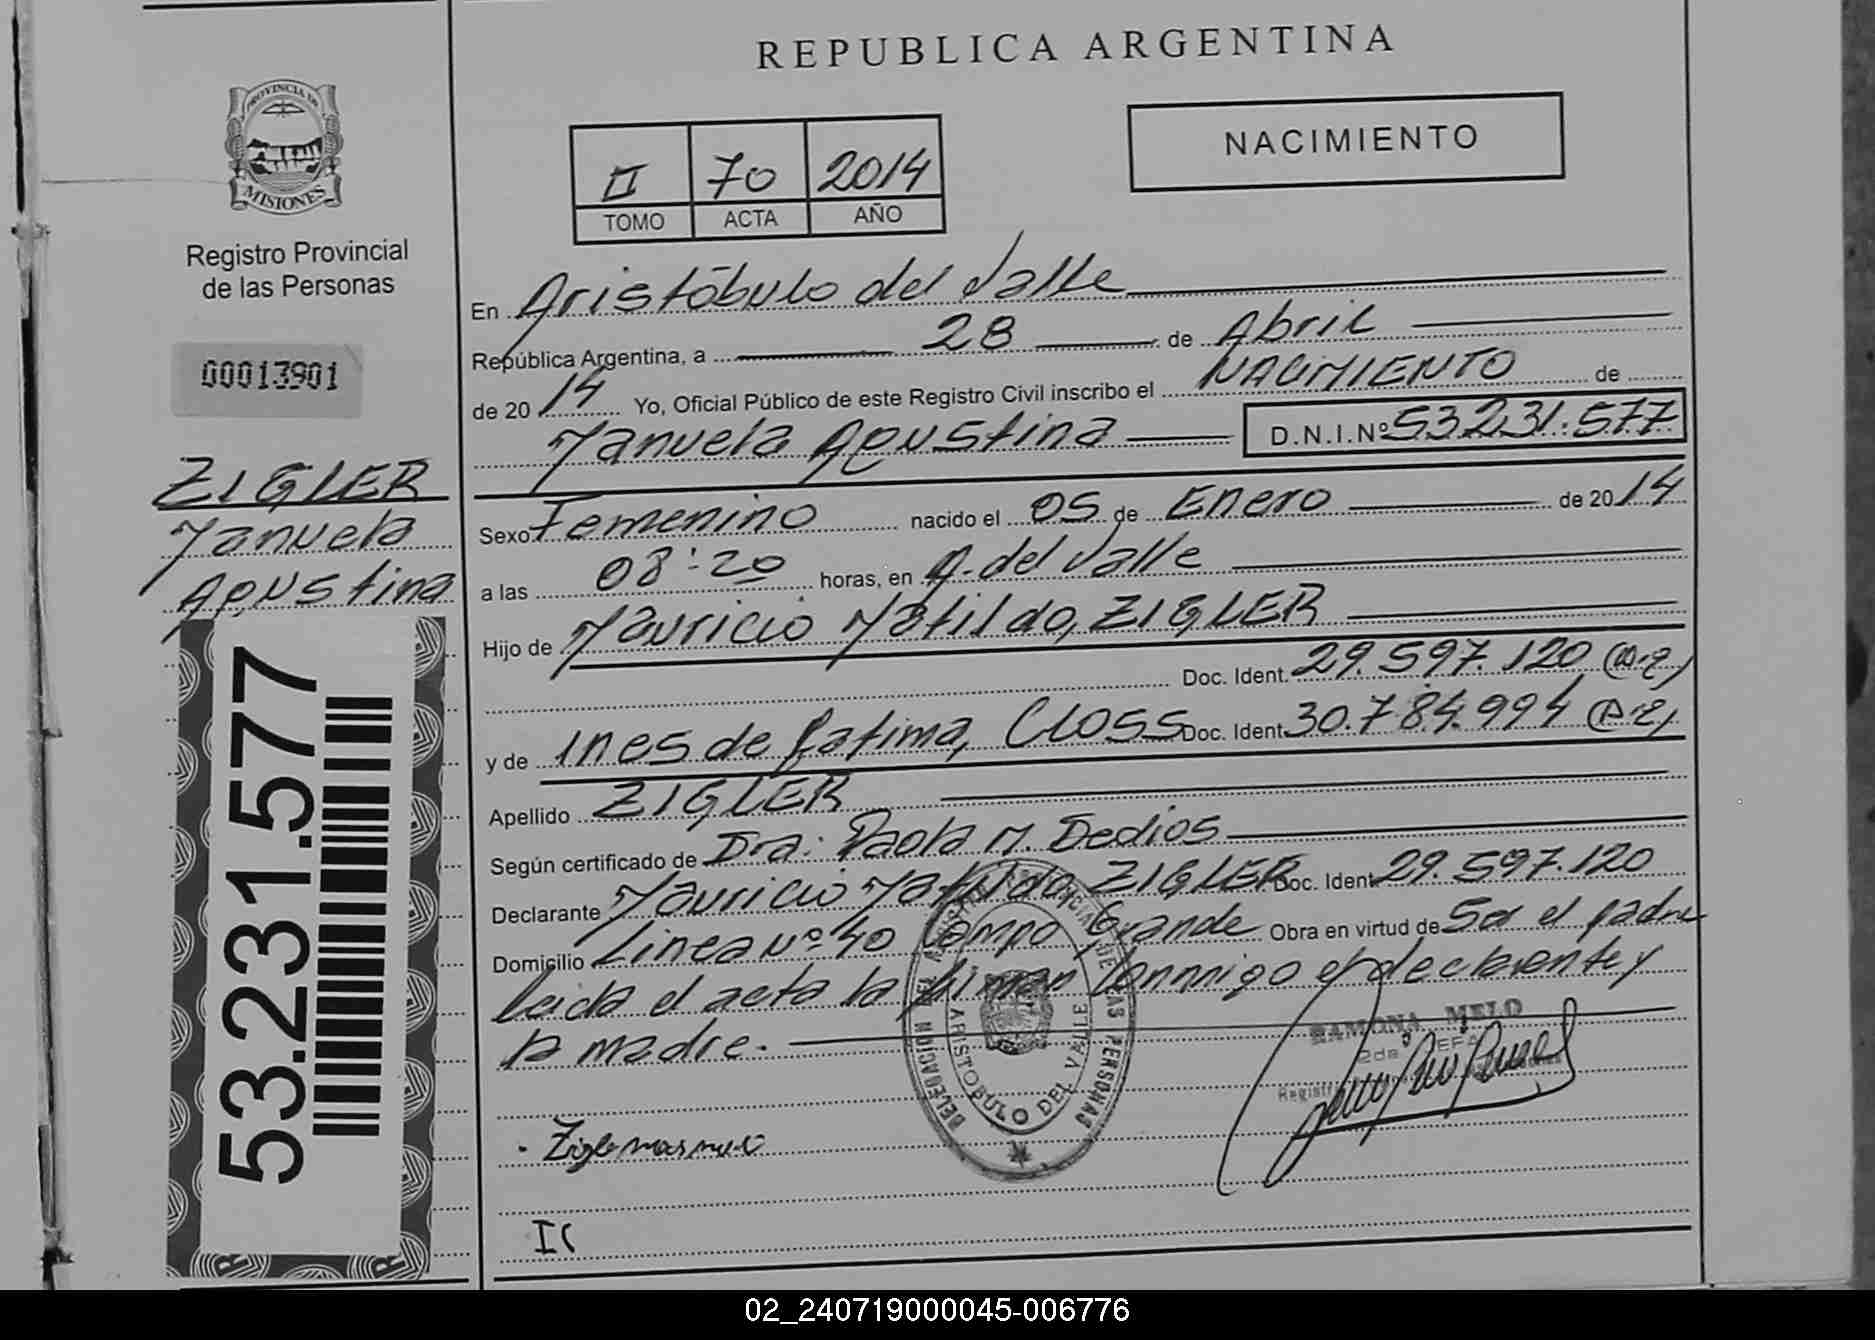 REPUBLICA ARGENTINA
PROVINCIA DE
MISIONES
Registro Provincial
de las Personas
00013901
ZIGLER
Manuela
Agustina
53.231.577
II 70 2014
TOMO ACTA AÑO
NACIMIENTO
En Aristóbulo del Valle
República Argentina, a 28 de Abril
de 2014 Yo, Oficial Público de este Registro Civil inscribo el NACIMIENTO de
Manuela Agustina D.N.I.Nº 53.231.577
Sexo Femenino nacido el 05 de Enero de 2014
a las 08:20 horas, en A. del Valle
Hijo de Mauricio Matildo, ZIGLER
Doc. Ident. 29.597.120
y de Ines de Fatima, Closs Doc. Ident. 30.784.994
Apellido ZIGLER
Según certificado de Dra: Paola M. Dedios
Declarante Mauricio Matildo ZIGLER Doc. Ident. 29.597.120
Domicilio Linea Nº 40 Campo Grande Obra en virtud de Ser el padre
Leida el acta la firman conmigo el declarante y
la madre.
DELEGACIÓN DEL REGISTRO PROVINCIAL DE LAS PERSONAS
ARISTOBULO DEL VALLE
RAMONA MELO
2da JEFA
02_240719000045-006776